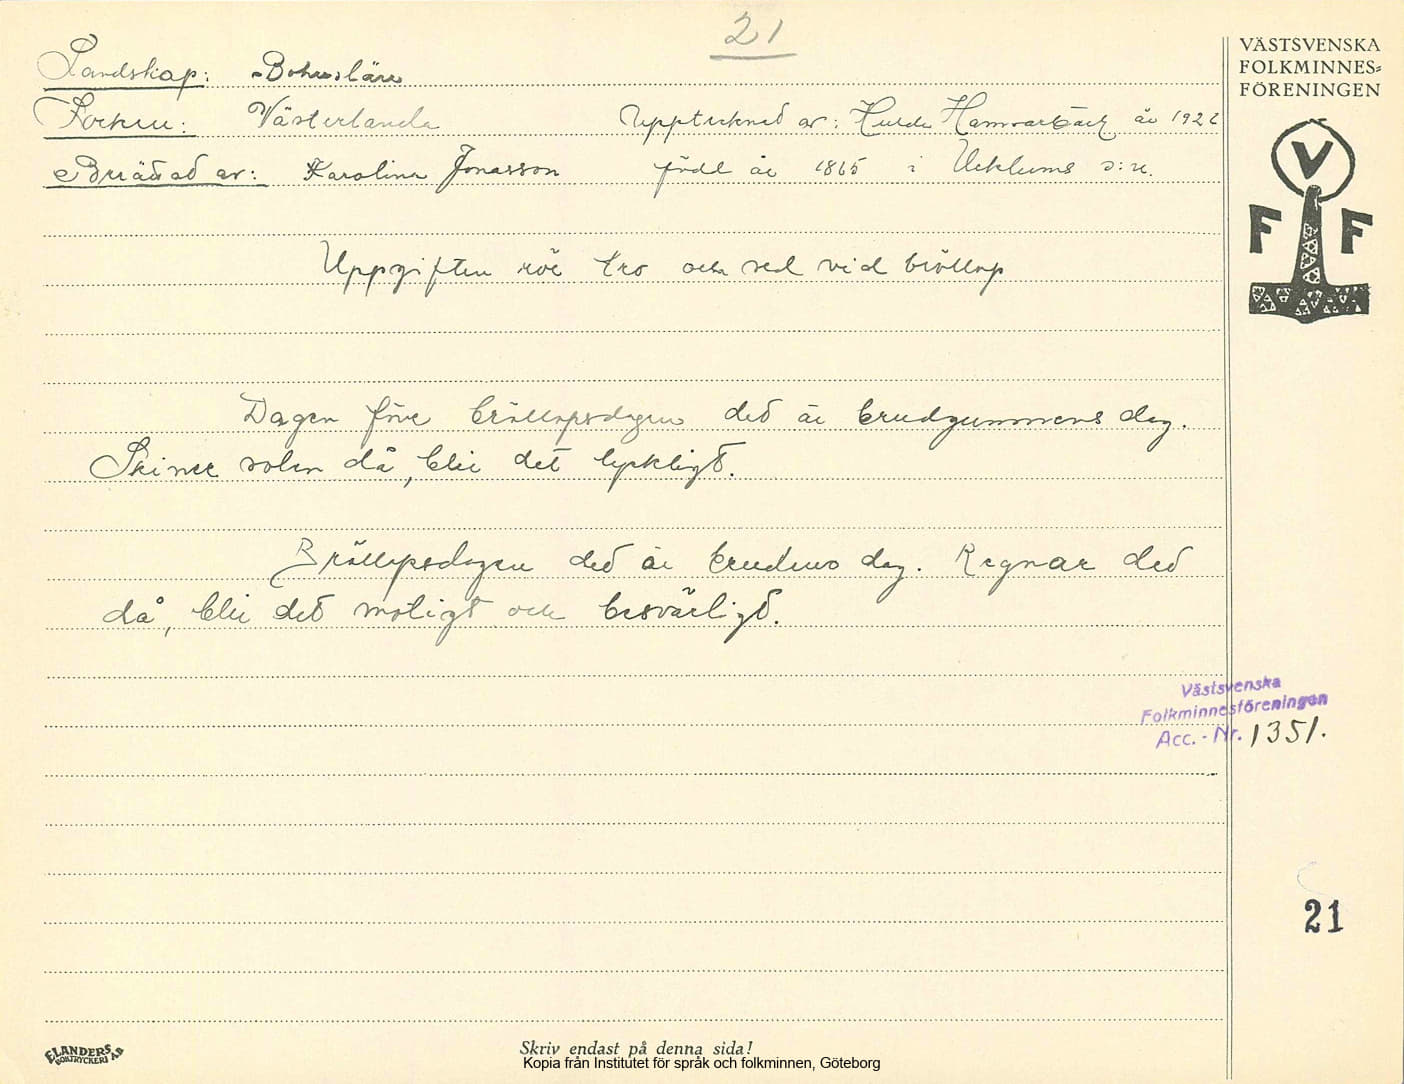 21
VÄSTSVENSKA
FOLKMINNES=
FÖRENINGEN
V
F F
Landskap: Bohuslän
Socken: Västerlanda Upptecknad av: Hulda Hammarbäck år 1922
Berättad av: Karolina Jonasson född år 1865 i Ucklums s:n.
Uppgiften rör tro och sed vid bröllop
Dagen före bröllopsdagen ded är brudgummens dag.
Skiner solen då, blir det lyckligt.
Bröllopsdagen ded är brudens dag. Regnar ded
då, blir det motigt och besvärligt.
Västsvenska
Folkminnesföreningen
Acc. - Nr. 1351.
21
ELANDERS
BOKTRYCKERI AB
Skriv endast på denna sida!
Kopia från Institutet för språk och folkminnen, Göteborg